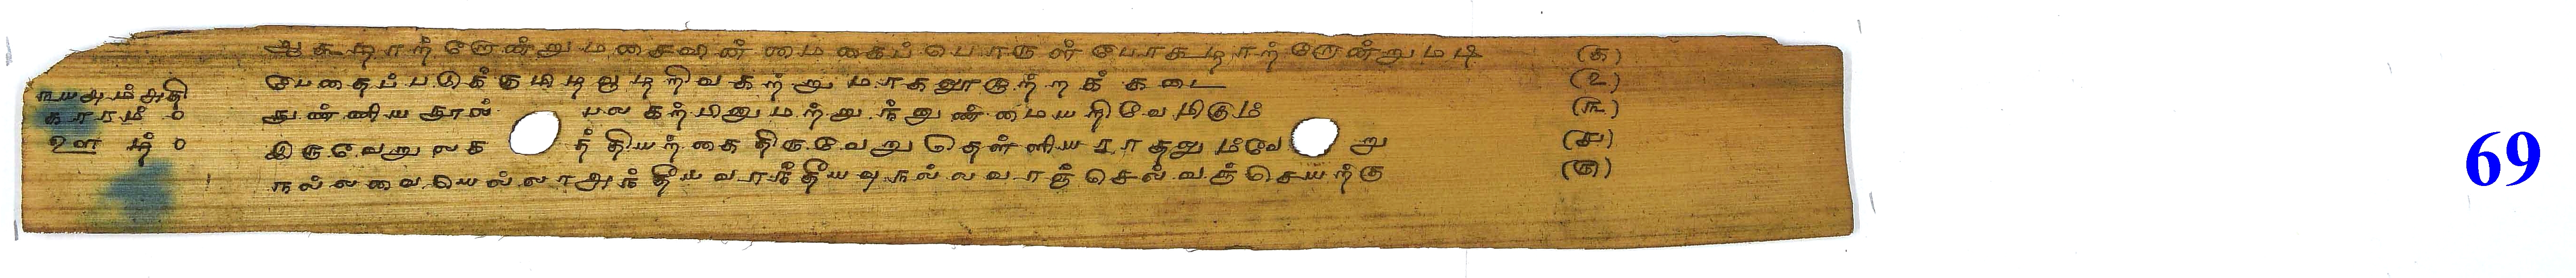 ஆகூழாற் றோன்று மசைவின்மை கைப்பொருள் போகூழாற் றோன்று மடி (க)
பேதைப் படுக்கு மிழவூ ழறிவகற்று மாகலூ ழுற்றக் கடை (உ)
நுண்ணிய நூல் பல கற்பினு மற்று ந்றனுண்மை யறிவே மிகும் (ங)
இருவேறு லக த் தியற்கை திருவேறு தெள்ளிய ராதலு ம்வே று (ச)
நல்லவை யெல்லாஅந் தீயவாந் தீயவு நல்லவாஞ் செல்வஞ் செயற்கு (ரு)
ஊ ழ்
69